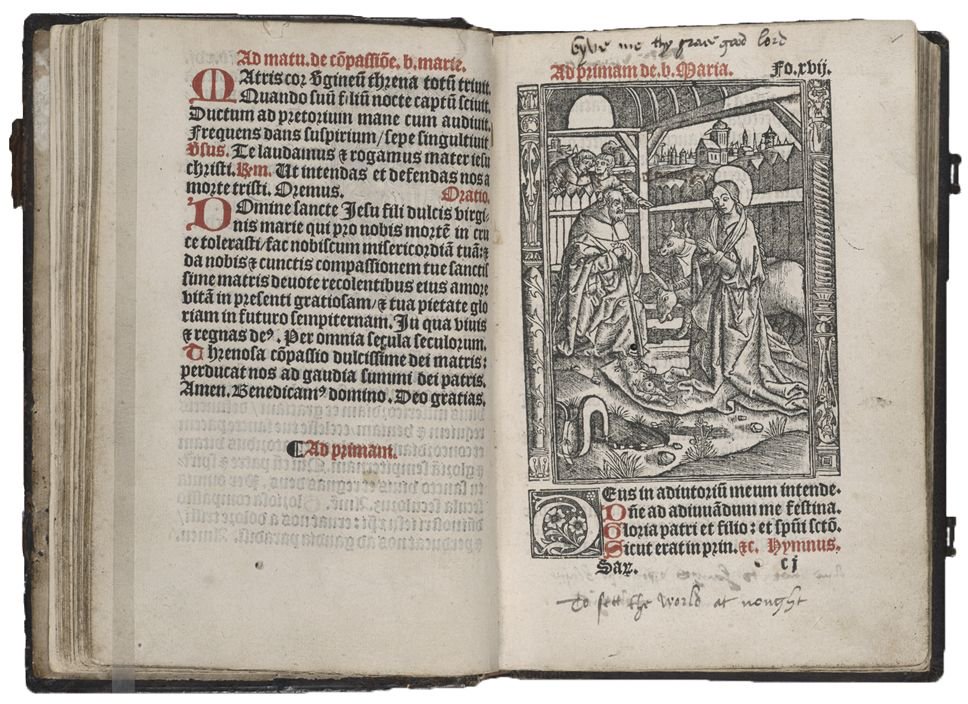 Ad matu. de cõpassiõe. b. marie.
MAtris cor v̉gineũ threna totũ triuit.
Quando suũ filiũ nocte captũ sciuit.
Ductum ad pretorium mane cum audiuit.
Frequens dans suspirium/ sepe singultiuit
v̉sus. Te laudamus ⁊ rogamus mater iesu
christi. Rem. Ut intendas et defendas nos a
morte tristi. Oremus. Oratio.
DOmine sancte Jesu fili dulcis virgi-
nis marie qui pro nobis mortẽ in cru
ce tolerasti/ fac nobiscum misericordiã tuã: ⁊
da nobis ⁊ cunctis compassionem tue sanctis
sime matris deuote recolentibus eius amore
vitã in presenti gratiosam/ ⁊ tua pietate glo
riam in futuro sempiternam. In qua viuis
⁊ regnas deꝰ. Per omnia secula seculorum.
Threnosa cõpassio dulcissime dei matris:
perducat nos ad gaudia summi dei patris.
Amen. Benedicamꝰ domino. Deo gratias.
¶Ad primam.
Gyve me thy grace good lord
Ad primam de. b. Maria. Fo. xvij.
DEus in adiutoriũ meum intende.
Dñe ad adiuuãdum me festina.
Gloria patri et filio: et spũi sctõ.
Sicut erat in prin. ⁊c. Hymnus.
Sax. c j
To sett the world at nought